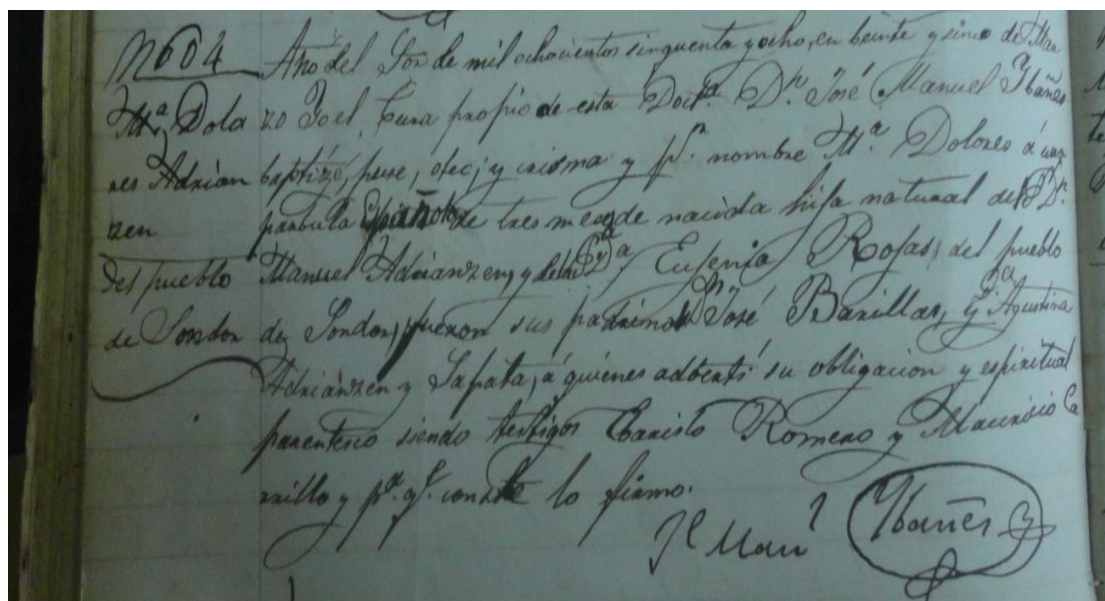 N 604
Mª Dolo
res Adrian
zen
del pueblo
de Sondor
Año del Sor de mil ochocientos sinquenta y ocho, en beinte y sinco de Mar
zo Yo el Cura propio de esta Doctª. Dn. José Manuel Ybañes
baptizé, puse, óleo; y crisma y pr. nombre Mª. Dolores á una
parbula Española de tres meses de nacida hija natural del Sr Dn.
Manuel Adrianzen, y de la Eugenia Rojas, del pueblo
de Sondor, fueron sus padrinos Dn José Barillas, y Da Agustina
Adrianzen y Sapata, á quienes adberti su obligacion y espiritual
parentesco siendo testigos Ebaristo Romero y Mauricio Ca
rrillo y pª. qe. conste lo firmo.
Je Manl Ybañes